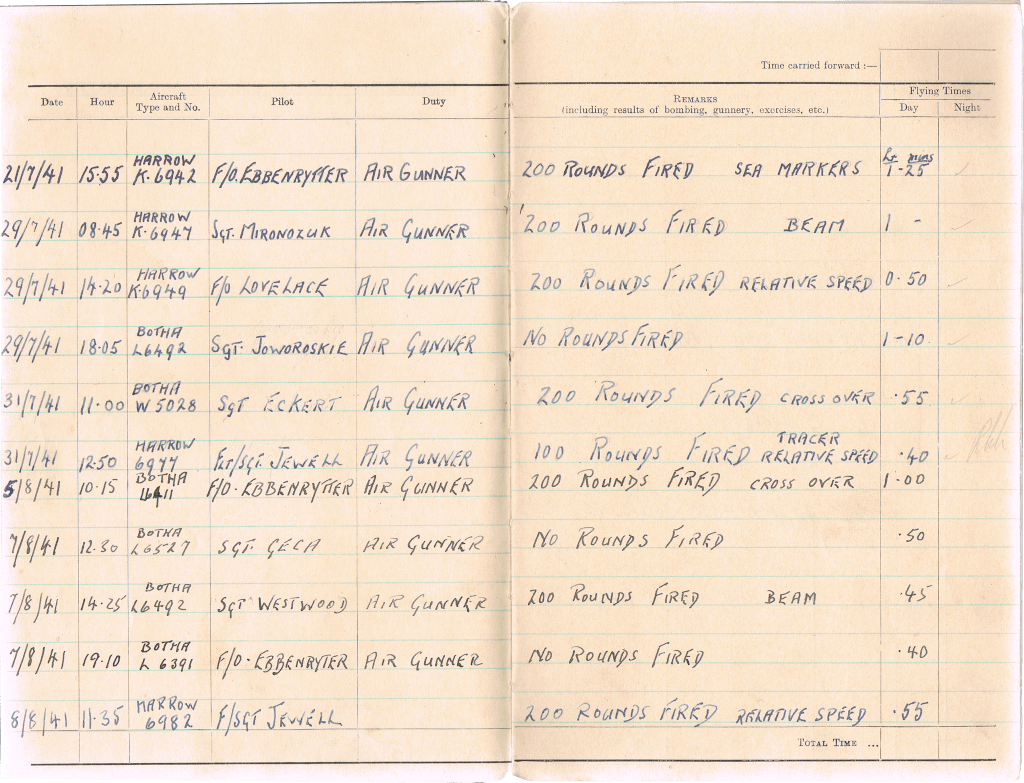 Time carried forward :—
Date Hour Aircraft Type and No. Pilot Duty REMARKS (including results of bombing, gunnery, exercises, etc.) Flying Times Day Night
Hr mins
21/7/41 15.55 HARROW K.6942 F/O.EBBENRYTTER AIR GUNNER 200 ROUNDS FIRED SEA MARKERS 1-25
29/7/41 08.45 HARROW K.6947 SGT. MIRONOZUK AIR GUNNER 200 ROUNDS FIRED BEAM 1 -
29/7/41 14.20 HARROW K.6949 F/O LOVELACE AIR GUNNER 200 ROUNDS FIRED RELATIVE SPEED 0.50
29/7/41 18.05 BOTHA L6492 SGT. JOWOROSKIE AIR GUNNER NO ROUNDS FIRED 1-10
31/7/41 11.00 BOTHA W5028 SGT ECKERT AIR GUNNER 200 ROUNDS FIRED CROSS OVER .55
31/7/41 12.50 HARROW 6977 FLT/SGT. JEWELL AIR GUNNER 100 ROUNDS FIRED TRACER RELATIVE SPEED .40
5/8/41 10.15 BOTHA F/O.EBBENRYTTER AIR GUNNER 200 ROUNDS FIRED CROSS OVER 1.00
7/8/41 12.30 BOTHA L6527 SGT. GECA AIR GUNNER NO ROUNDS FIRED .50
7/8/41 14.25 BOTHA L6492 SGT WESTWOOD AIR GUNNER 200 ROUNDS FIRED BEAM .45
7/8/41 19.10 BOTHA L 6391 F/O.EBBENRYTER AIR GUNNER NO ROUNDS FIRED .40
8/8/41 11.35 HARROW 6982 F/SGT JEWELL 200 ROUNDS FIRED RELATIVE SPEED .55
TOTAL TIME ...